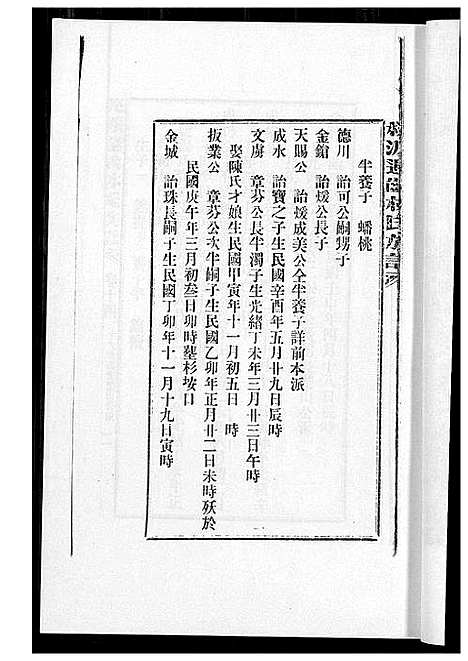 半養子 蟠桃
德川 詒可公嗣甥子
金鎗 詒煖公長子
天賜公 詒煖成美公全半養子詳前本派
成水 詒寶之子生民國辛酉年五月廿九日辰時
文虜 章芬公長半濁子生光緒丁未年三月廿三日午時
娶陳氏才娘生民國甲寅年十一月初五日 時
扳業公 章芬公次半嗣子生民國乙卯年正月廿二日未時歿於
民國庚午年三月初叁日卯時塟杉垵口
金城 詒珠長嗣子生民國丁卯年十一月十九日寅時